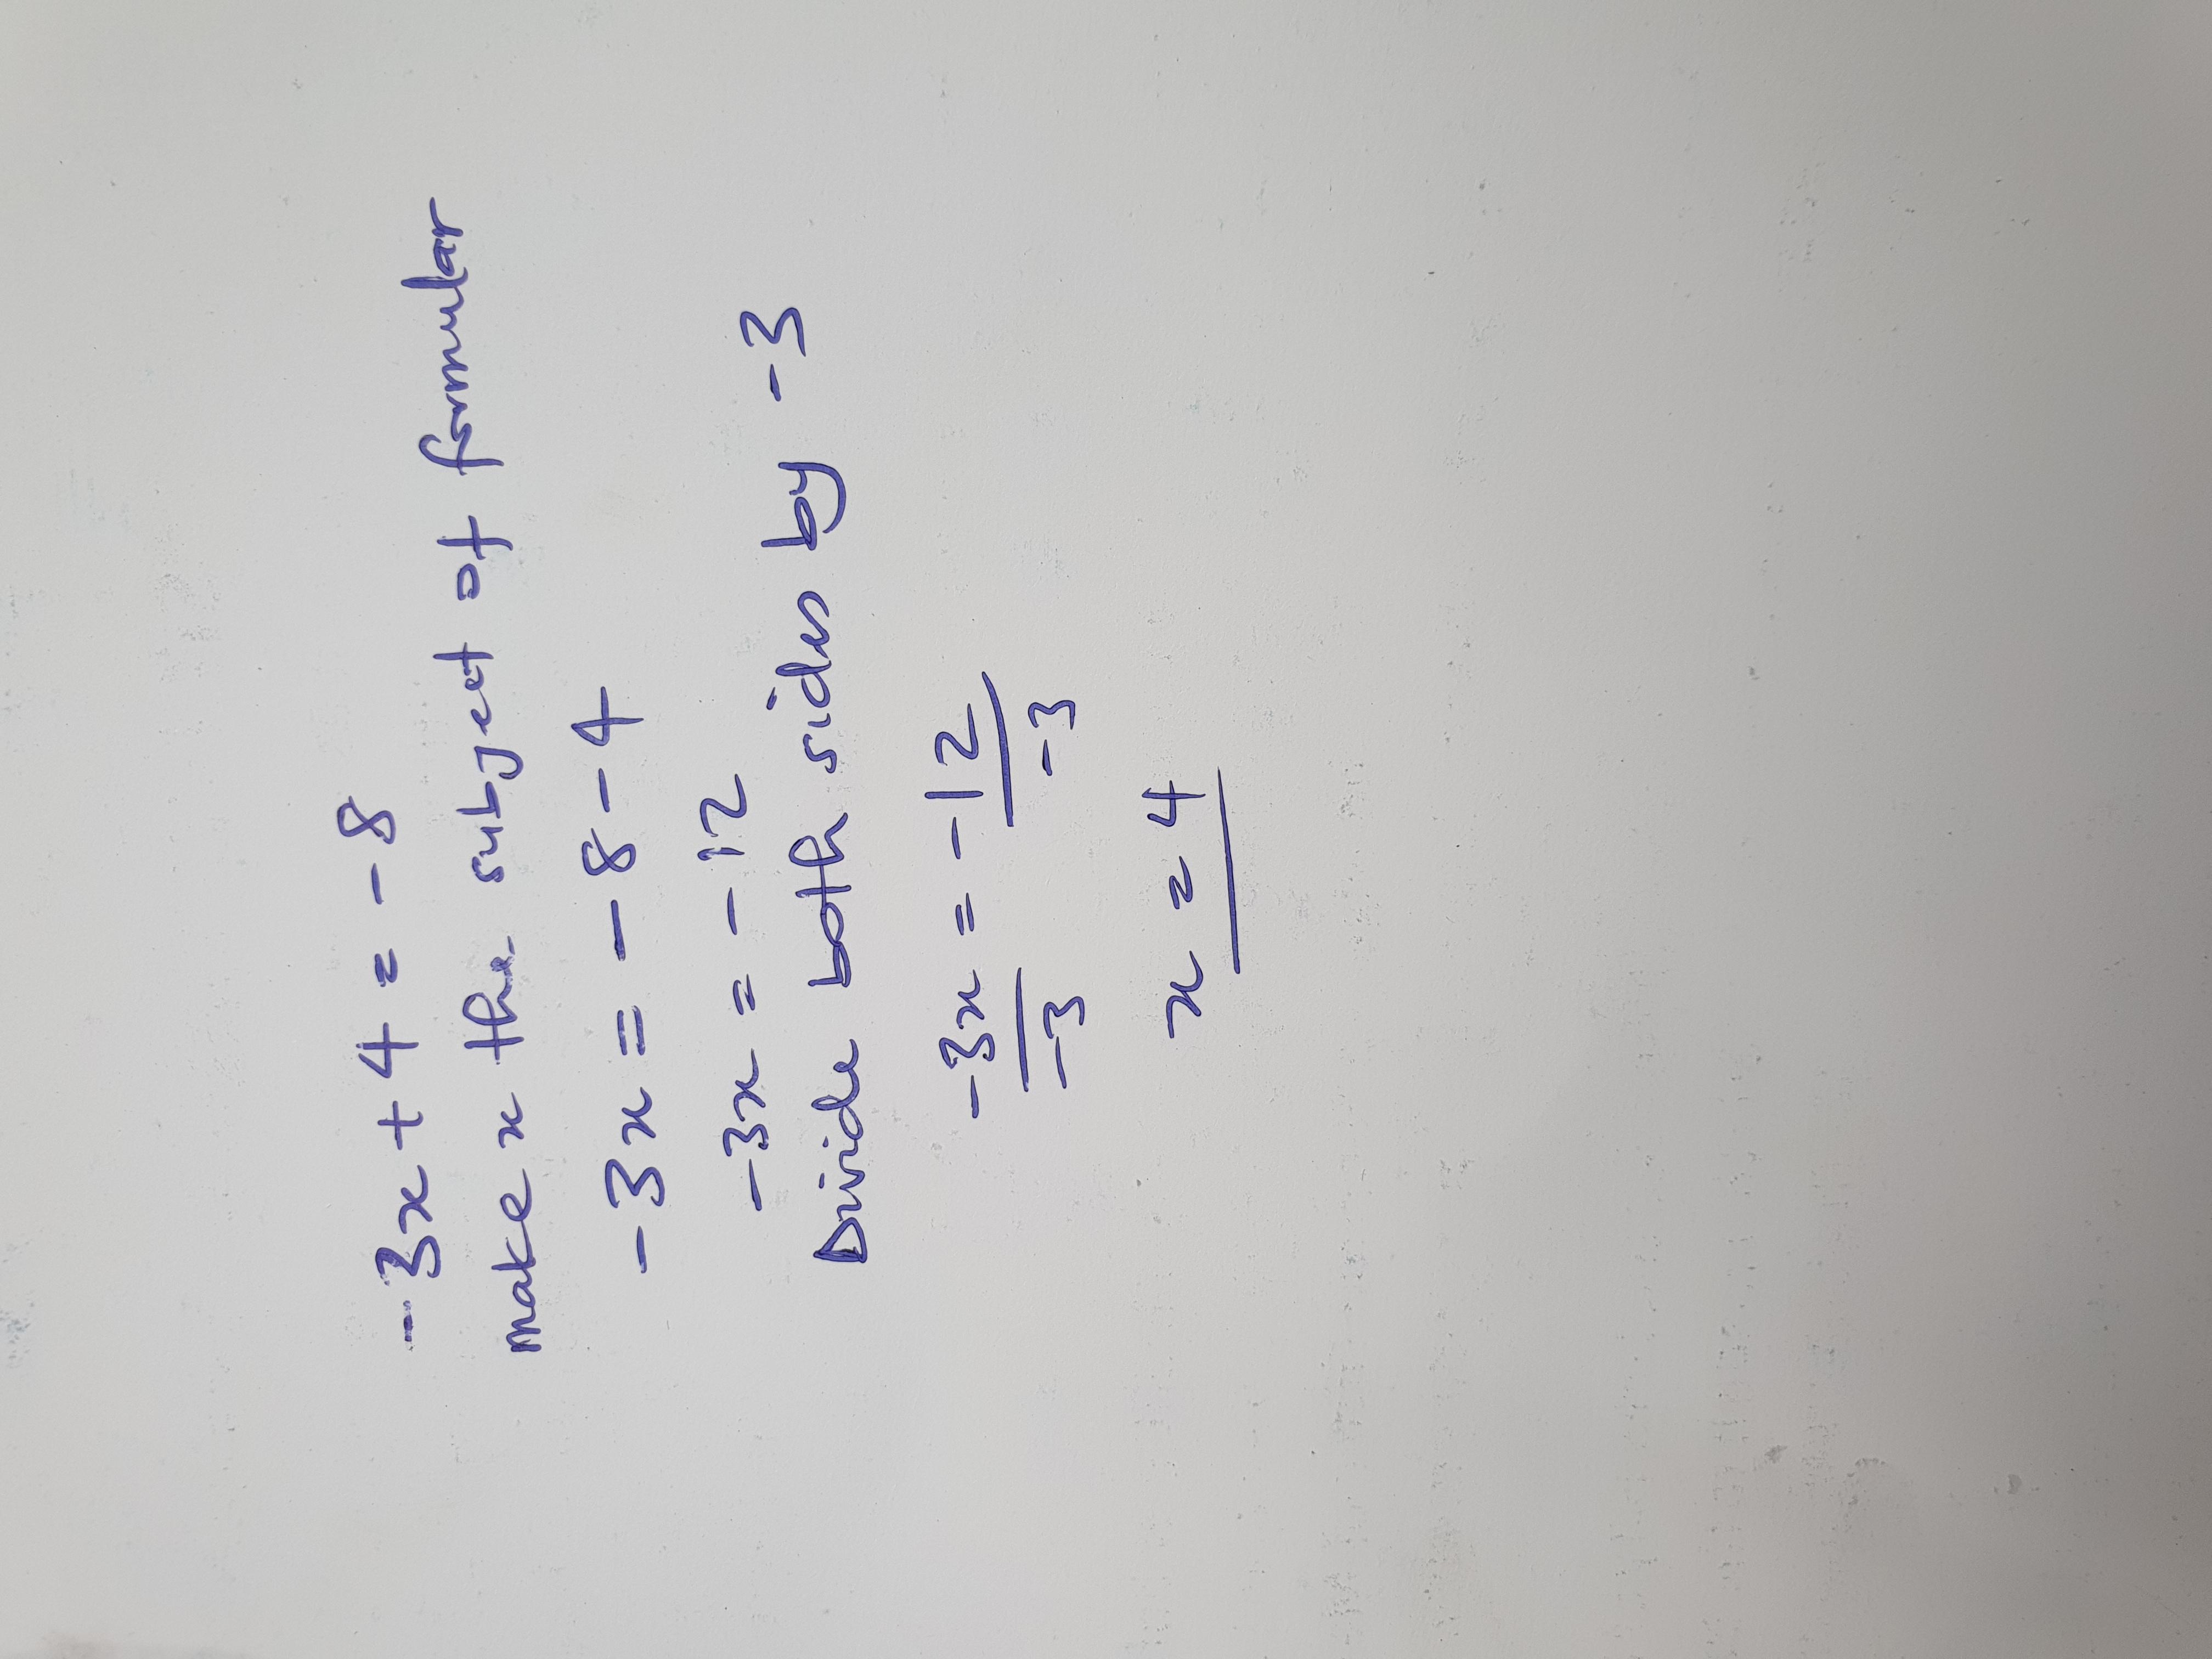 -3x + 4 = -8
make x the subject of formular
-3x = -8 - 4
-3x = -12
Divide both sides by -3
-3x = -12
-3 -3
x = 4